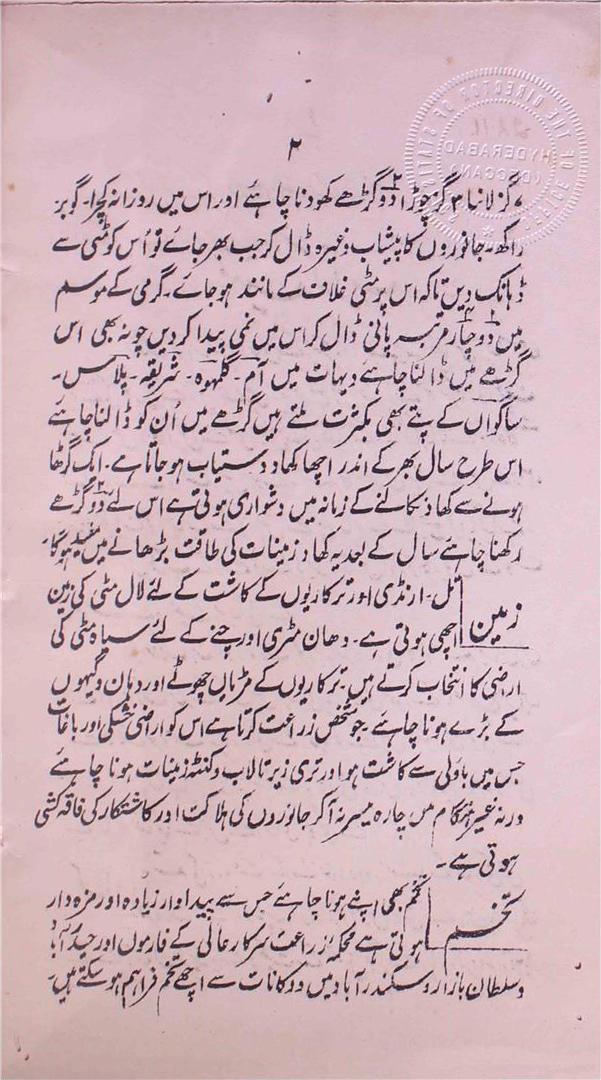 ۲
۷ گز لانبا ۳ گز چوڑا دو ۲ گڑھے کھودنا چاہئے اور اس میں روزانہ کچرا۔ گوبر
راکھ۔ جانوروں کا پیشاب وغیرہ ڈال کر جب بھر جائے تو اُس کو مٹی سے
ڈہانک دیں تاکہ اس پر مٹی غلاف کے مانند ہو جائے۔ گرمی کے موسم
میں دو چار مرتبہ پانی ڈال کر اس میں نمی پیدا کر دیں چونہ بھی اس
گڑھے میں ڈالنا چاہئے دیہات میں آم۔ گلمہوہ۔ شریفہ۔ پلاس۔
ساگوان کے پتے بھی بکثرت ملتے ہیں گڑھے میں اُن کو ڈالنا چاہئے
اس طرح سال بھر کے اندر اچھا کھاد دستیاب ہو جاتا ہے۔ ایک گڑھا
ہونے سے کھاد نکالنے کے زمانہ میں دشواری ہوتی ہے اس لئے دو ۲ گڑھے
رکھنا چاہئے سال کے بعد یہ کھاد زمینات کی طاقت بڑھانے میں مفید ہوگا۔
زمین تل۔ ارنڈی اور ترکاریوں کے کاشت کے لئے لال مٹی کی زمین
اچھی ہوتی ہے۔ دھان مٹری اور چنے کے لئے سیاہ مٹی کی
ارضی کا انتخاب کرتے ہیں۔ ترکاریوں کے مڑیاں چھوٹے اور دہان و گیہوں
کے بڑے ہونا چاہئے۔ جو شخص زراعت کرتا ہے اس کو ارضی خشکی اور باغات
جس میں باؤلی سے کاشت ہو اور تری زیر تالاب و کنٹہ زمینات ہونا چاہئے
ورنہ غیر ہنگام میں چارہ میسر نہ آکر جانوروں کی ہلاکت اور کاشتکار کی فاقہ کشی
ہوتی ہے۔
تخم تخم بھی اچھے ہونا چاہئے جس سے پیداوار زیادہ اور مزہ دار
ہوتی ہے محکمہ زراعت سرکار عالی کے فارموں اور حیدرآباد
و سلطان بازار و سکندر آباد میں دوکانات سے اچھے تخم فراہم ہو سکتے ہیں۔
THE DIRECTOR OF
HYDERABAD
(DECCAN)